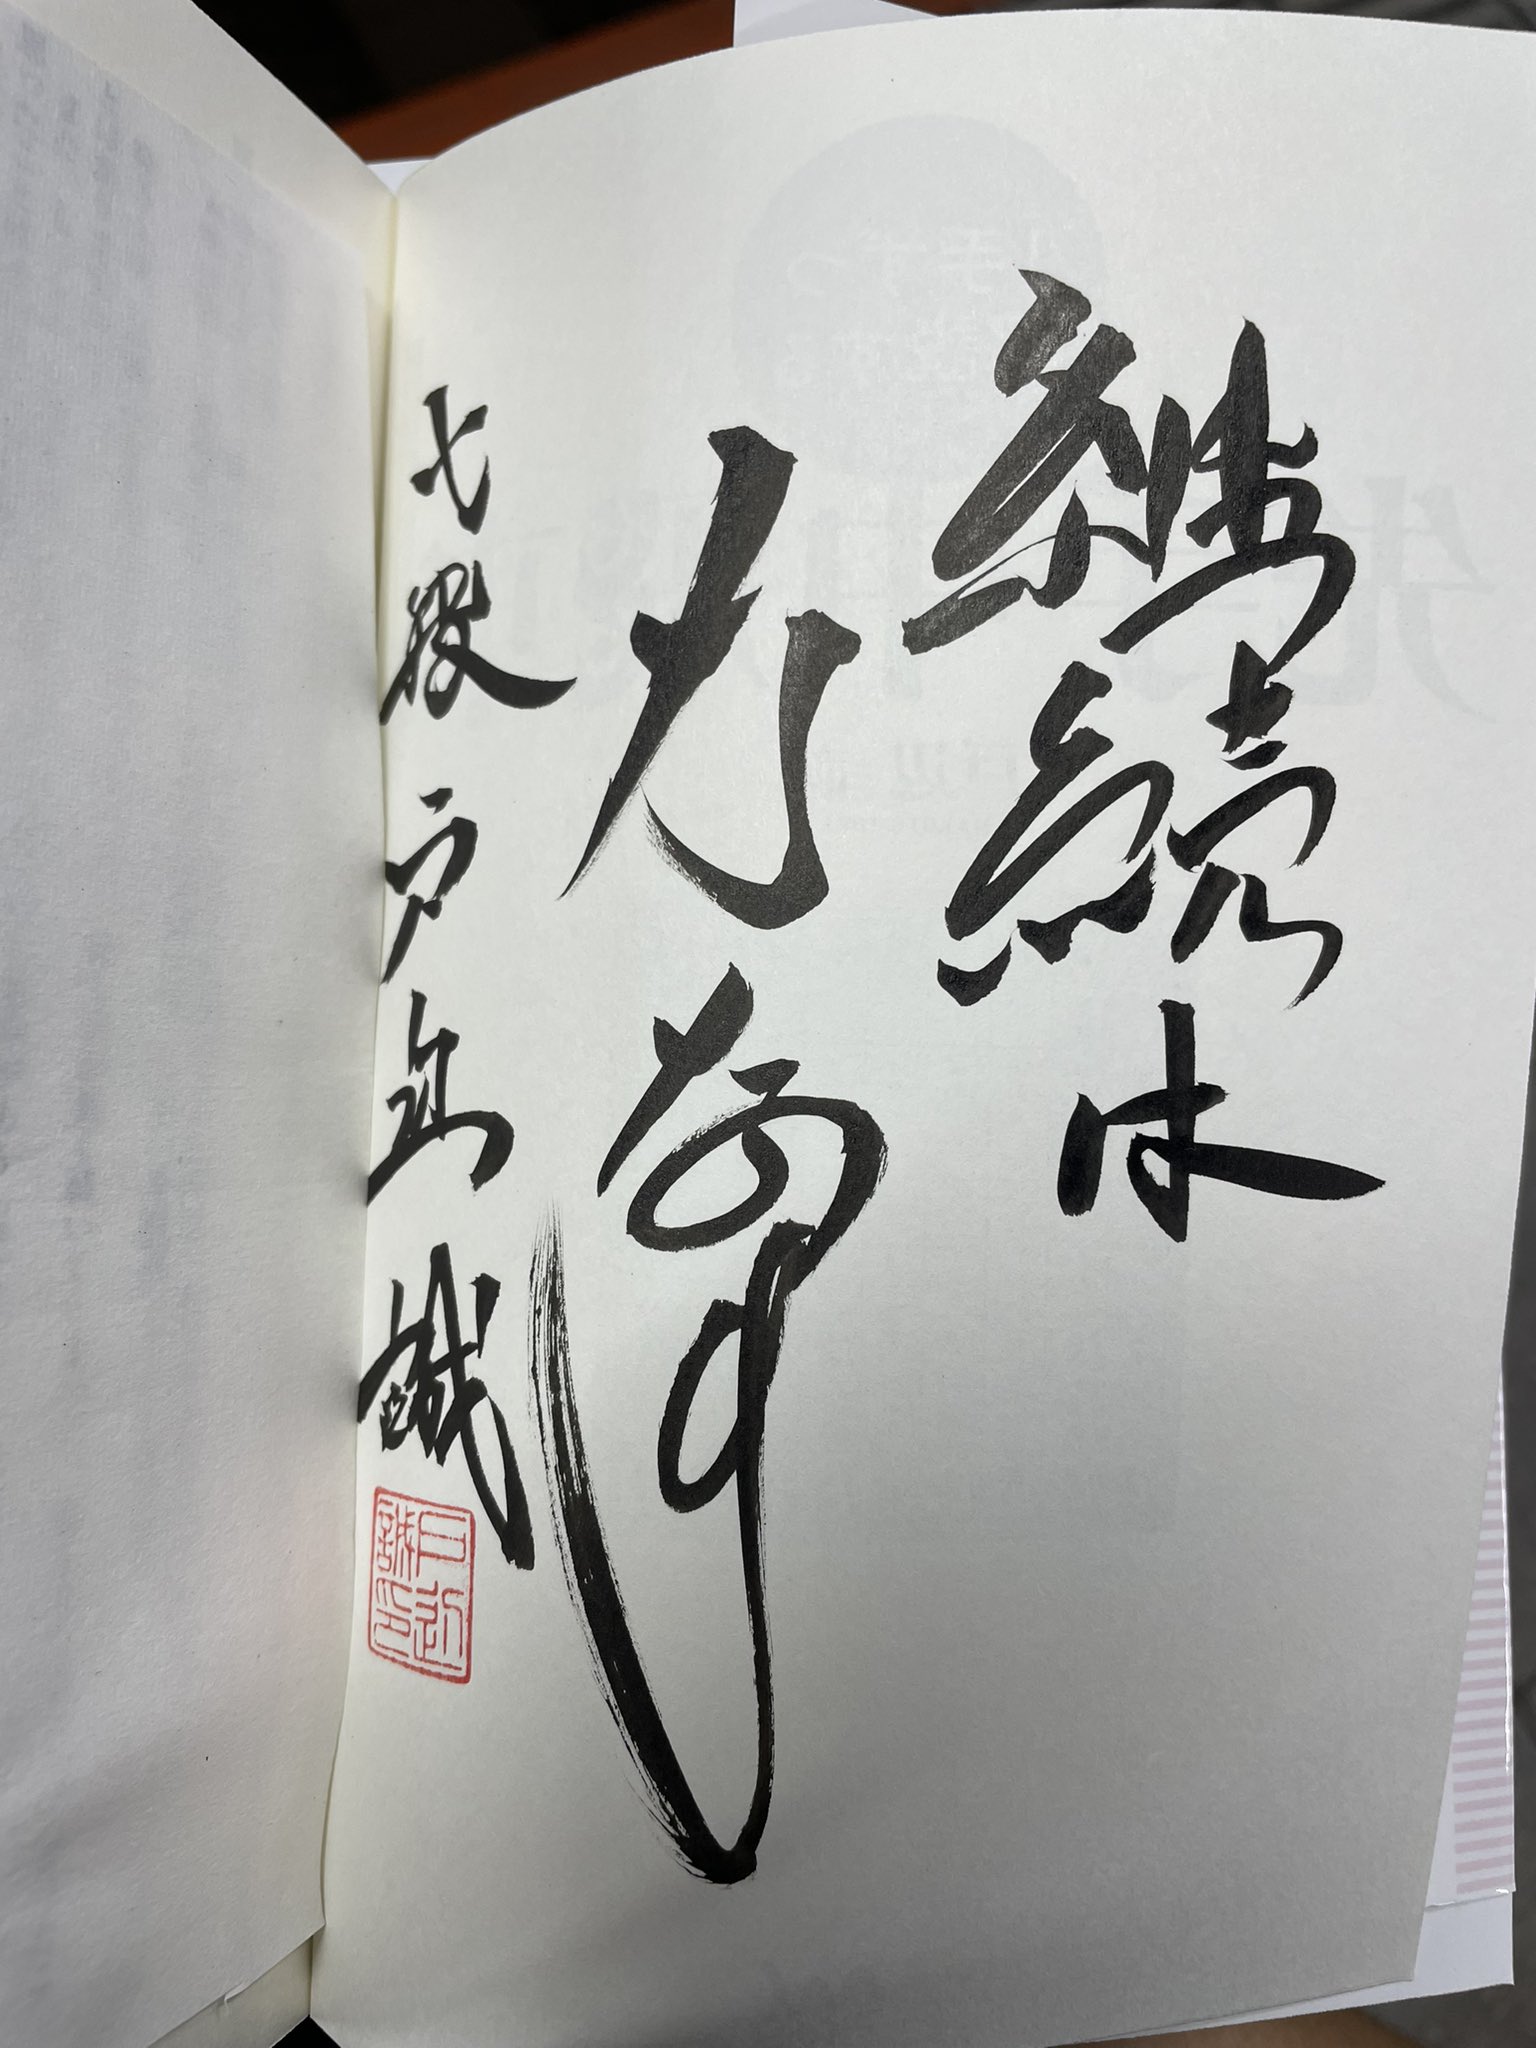 継続は
力なり
七段 戸辺 誠
戸辺誠印